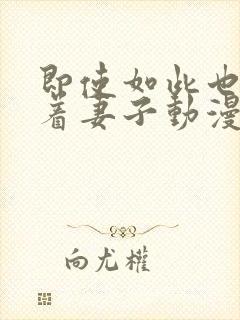 即使如此也
着妻子動漫
向尤權